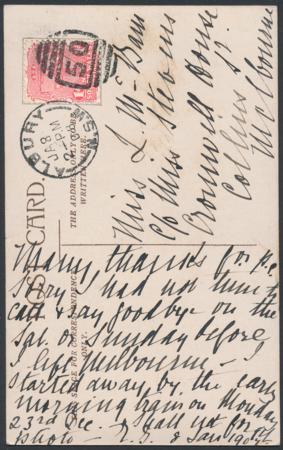 ALBURY
JA 8
2- PM
08
N.S.W
50
POST CARD.
THE ADDRESS ONLY TO BE
WRITTEN HERE.
SPACE FOR CORRESPONDENCE
ONLY.
Miss J. Mc
C/o Miss Stevens
Cromwell House
Collins St.
Melbourne
Many thanks for p.c.
Sorry I had not time to
call & say goodbye on the
Sat. or Sunday before
I left Melbourne —
Started away by the early
morning train on Monday
23rd Dec. — shall wait for
8 Jan 190